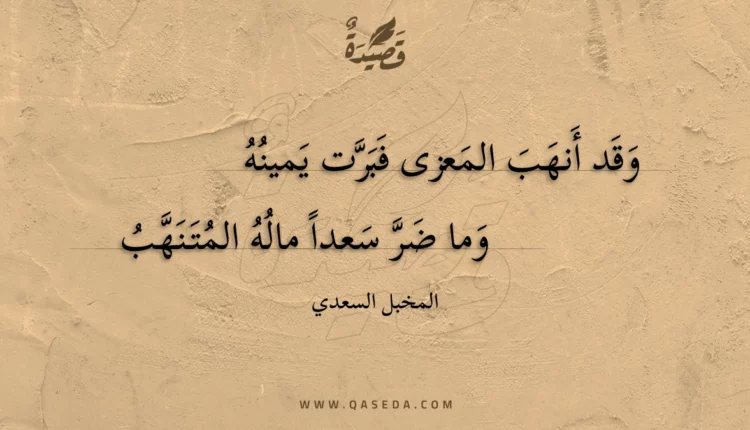 قَصِيدَةٌ
وَقَد أَنهَبَ المَعزى فَبَرَّت يَمينُهُ
وَما ضَرَّ سَعداً مالُهُ المُتَنَهَّبُ
المخبل السعدي
WWW.QASEDA.COM